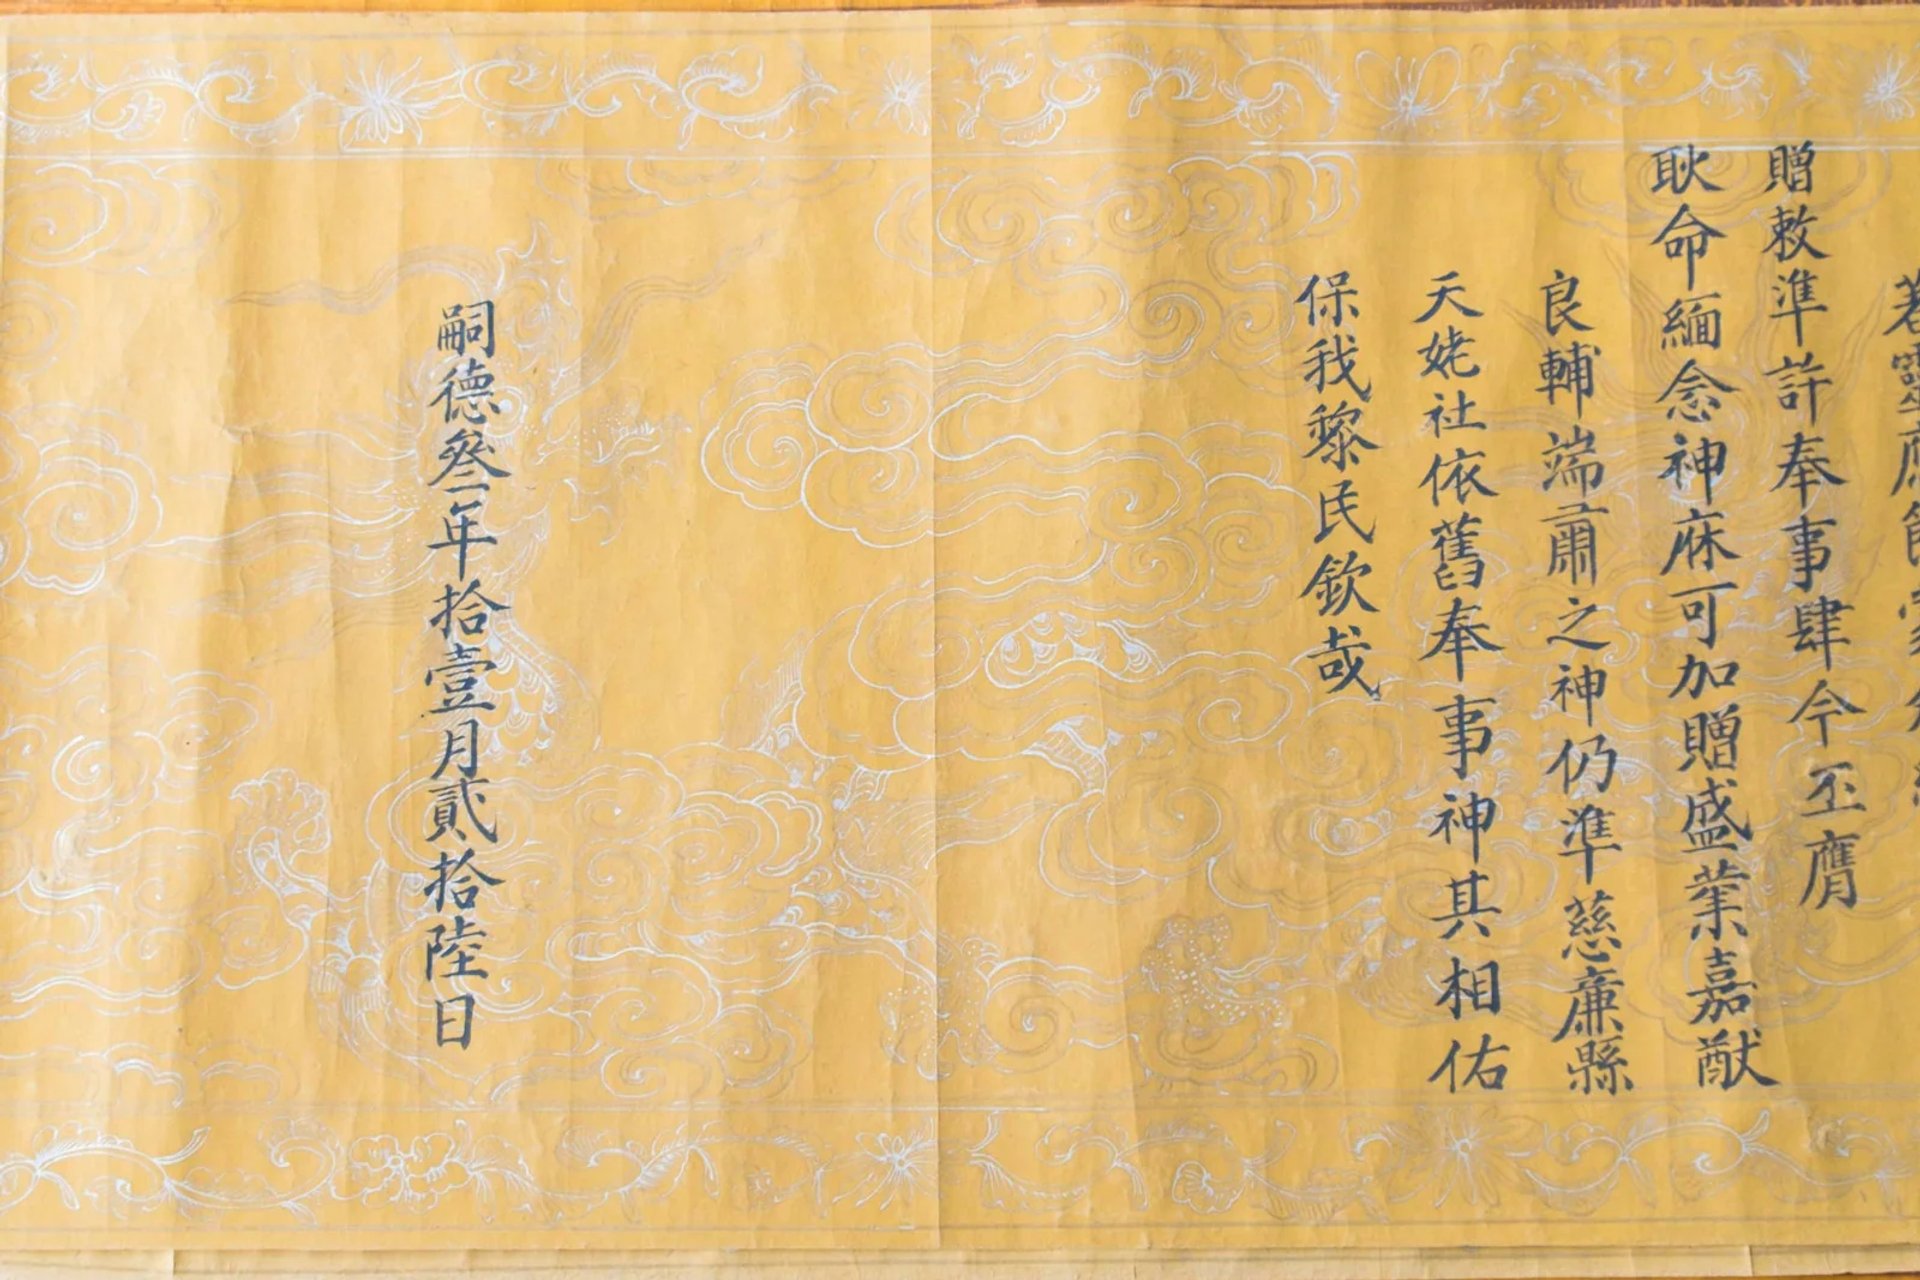 著靈應節蒙頒給
贈敕準許奉事肆今丕膺
耿命緬念神庥可加贈盛業嘉猷
良輔端肅之神仍準慈廉縣
天姥社依舊奉事神其相佑
保我黎民欽哉
嗣德叁年拾壹月貳拾陸日